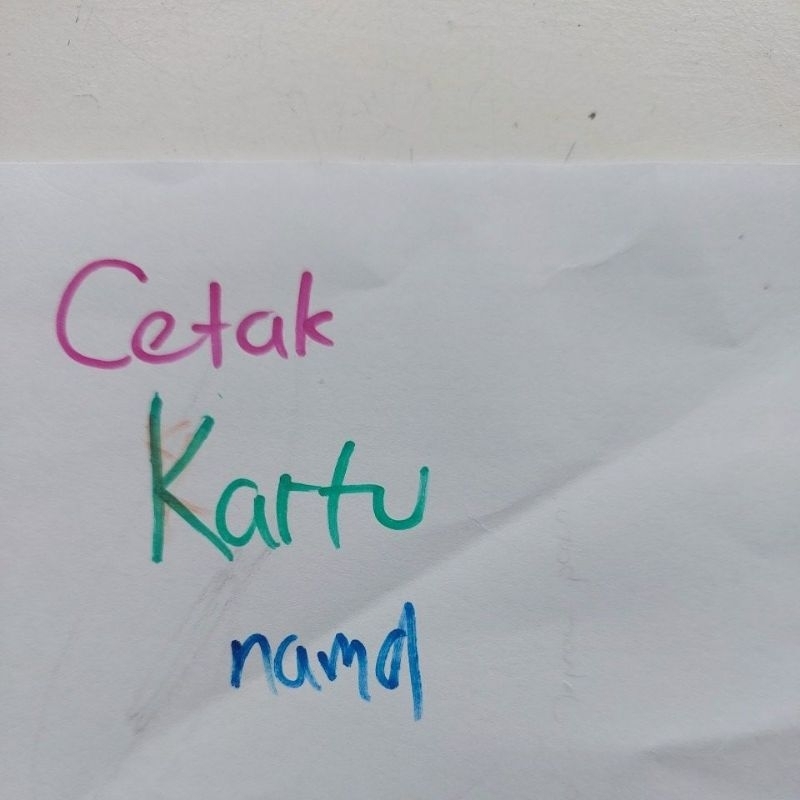 Cetak
Kartu
nama